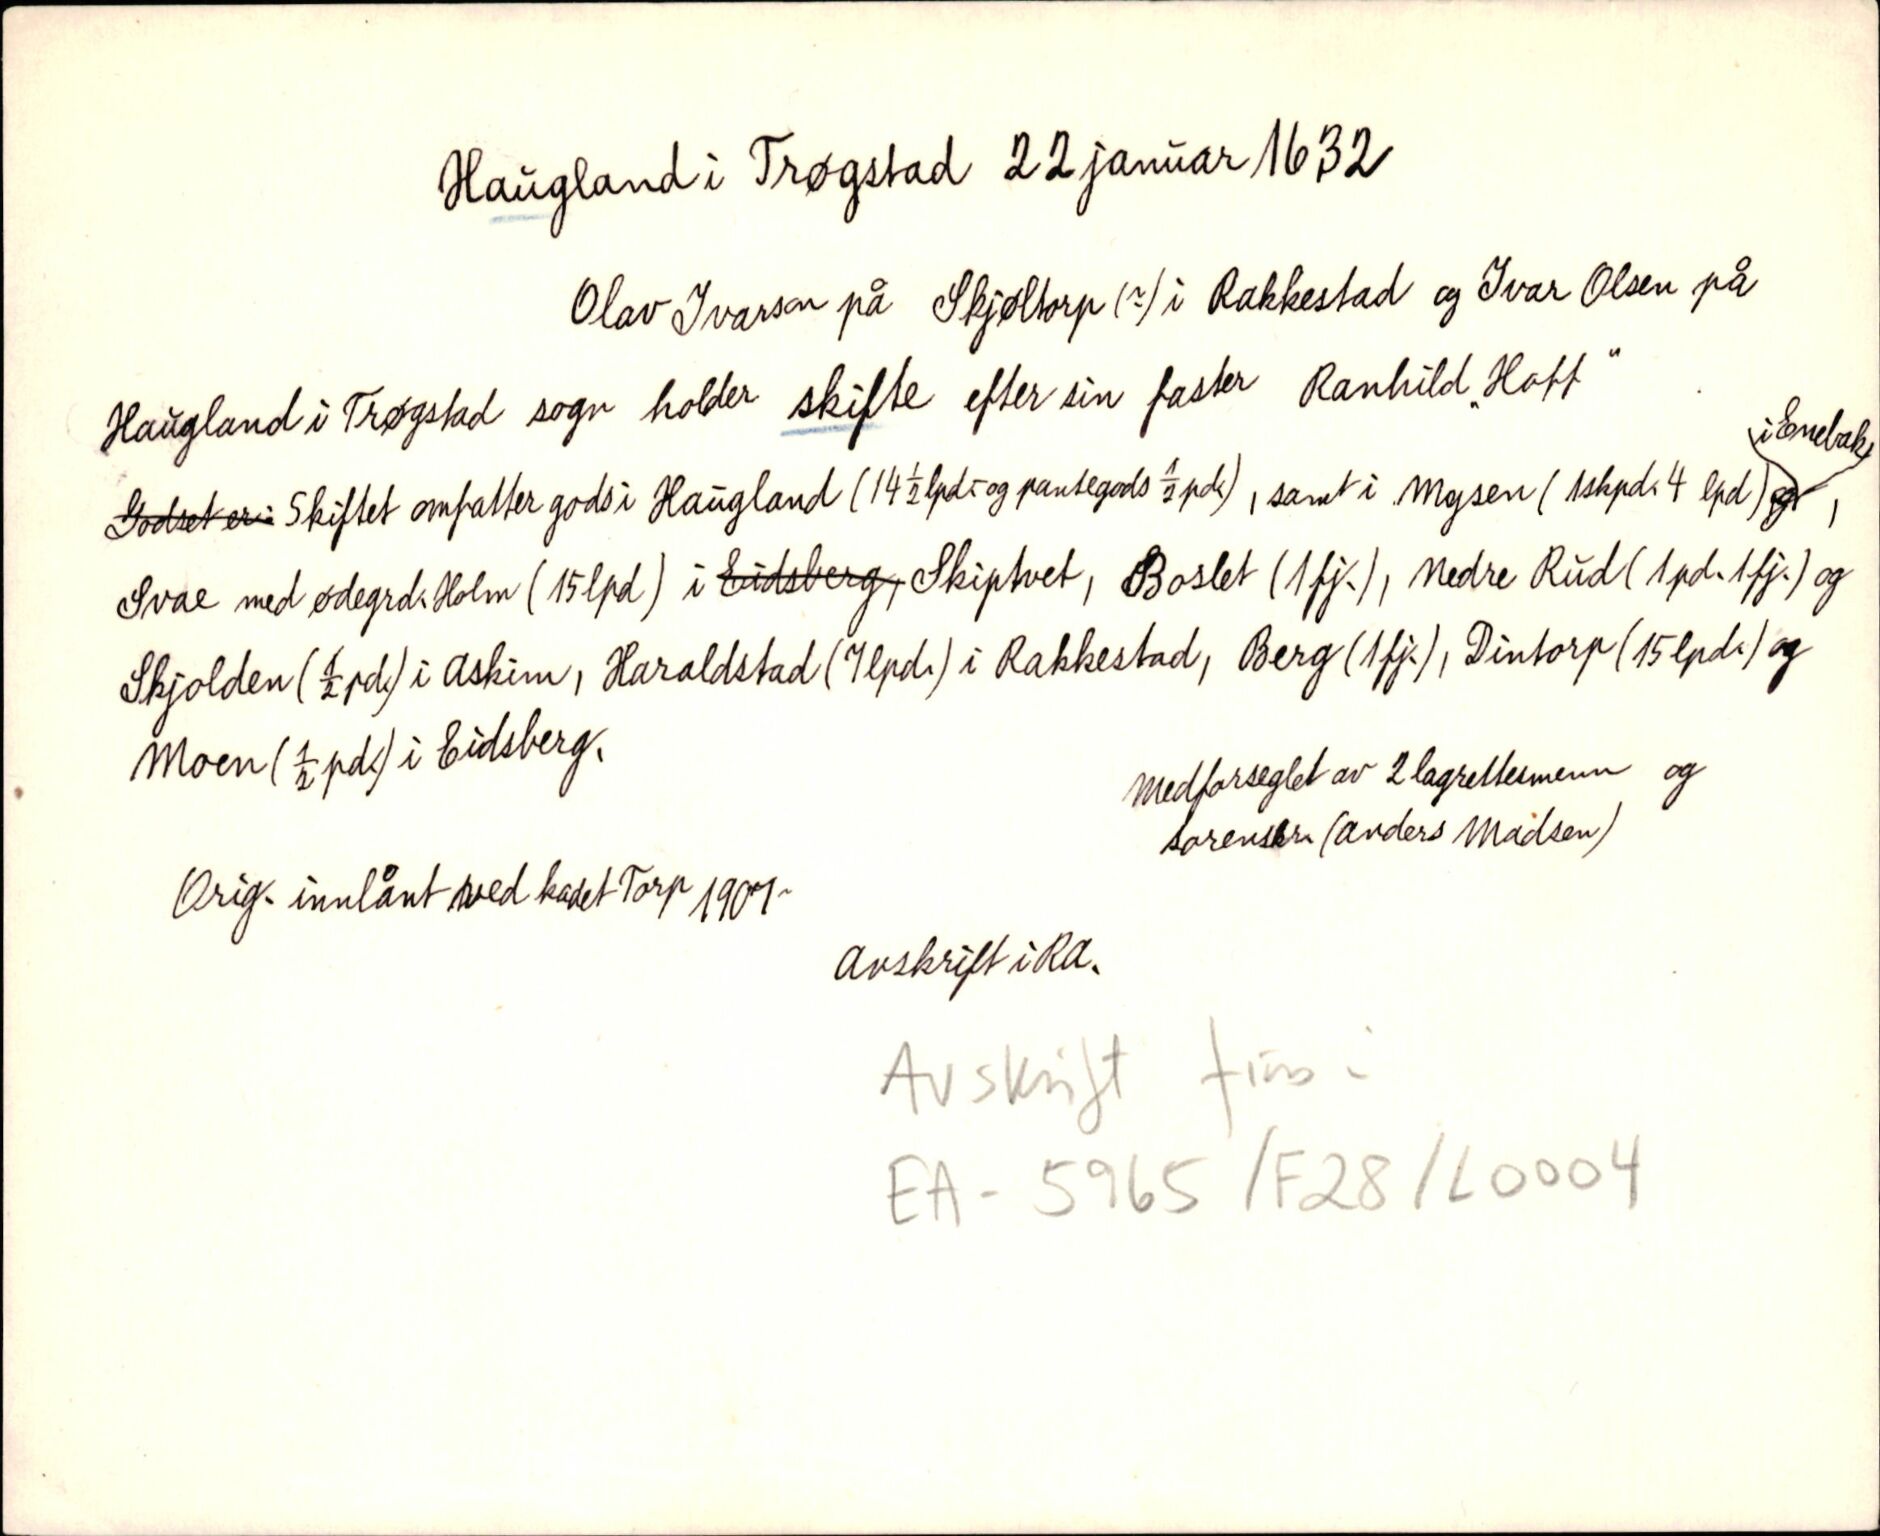 Haugland i Trøgstad 22 januar 1632
Olav Ivarson på Skjøltorp (?) i Rakkestad og Ivar Olsen på
Haugland i Trøgstad sogn holder skifte efter sin faster Ranhild „Hoff"
Godset er: Skiftet omfatter gods i Haugland (14 ½ lpd. og pantegods ½ pd.), samt i Mysen (1 skpd. 4 lpd) i Enebak og,
Svae med ødegrd. Holm (15 lpd) i Eidsberg, Skiptvet, Boslet (1 fj.), Nedre Rud (1 pd. 1 fj.) og
Skjolden (½ pd.) i Askim, Haraldstad (7 lpd.) i Rakkestad, Berg (1 fj.), Dintorp (15 lpd.) og
Moen (½ pd.) i Eidsberg.
Medforseglet av 2 lagrettesmenn og
sorenskr. (Anders Madsen)
Orig. innlånt ved kadet Torp 1907.
Avskrift i RA.
Avskrift fins i
EA - 5965 /F28 /L0004